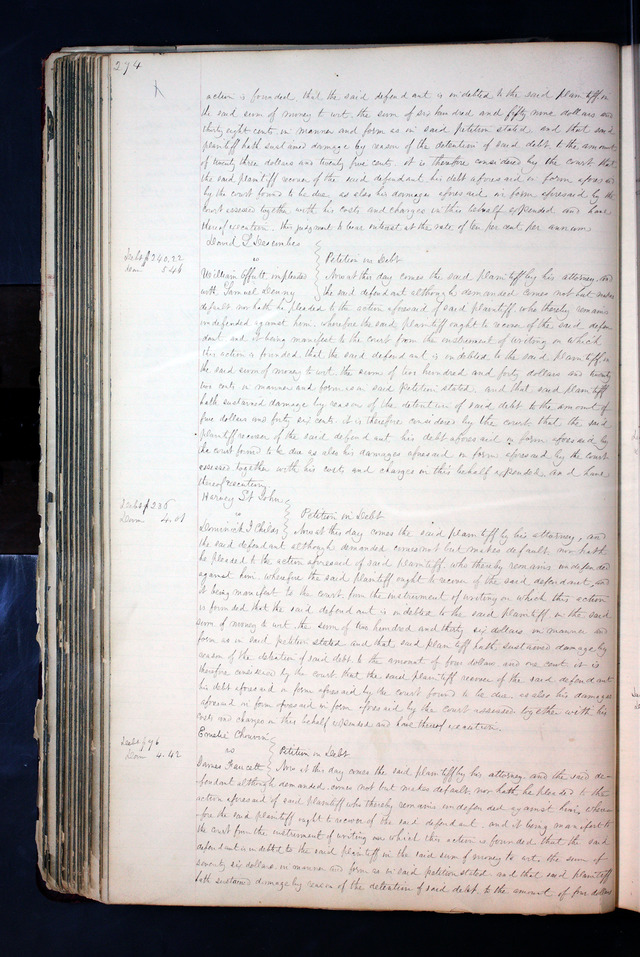 274
action is founded, that the said defendant is indebted to the said plaintiff in
the said sum of money to wit, the sum of six hundred and fifty nine dollars and
thirty eight cents in manner and form as in said petition stated and that said
plaintiff hath sustained damage by reason of the detention of said debt to the amount
of twenty three dollars and twenty five cents. it is therefore considered by the court that
the said plaintiff recover of the said defendant his debt aforesaid in form aforesaid
by the court found to be due as also his damages aforesaid in form aforesaid by the
court assessed together with his costs and charges in this behalf expended and have
thereof execution. this judgment to bear interest at the rate of ten per cent per annum
David L Descombes
Debt $240.22
dam 5.46
vs
Petition in Debt
William impleaded
with Samuel Denny
Now at this day comes the said plaintiff by his attorney and
the said defendant although demanded comes not but makes
default nor hath he pleaded to the action aforesaid of said plaintiff who thereby remains
undefended against him. wherefore the said plaintiff ought to recover of the said defen
dant and it being manifest to the court from the instrument of writing on which
this action is founded, that the said defendant is indebted to the said plaintiff in
the said sum of money to wit, the sum of two hundred and forty dollars and twenty
two cents in manner and form as in said Petition stated, and that said plaintiff
hath sustained damage by reason of the detention of said debt to the amount of
five dollars and forty six cents. it is therefore considered by the court that the said
plaintiff recover of the said defendant his debt aforesaid in form aforesaid by
the court found to be due as also his damages aforesaid in form aforesaid by the court
assessed together with his costs and charges in this behalf expended and have
thereof execution.
Harvey St John
Debt $236
Dam 4.01
vs
Petition in Debt
Dominick J Childs
Now at this day comes the said plaintiff by his attorney, and
the said defendant although demanded comes not but makes default, nor hath
he pleaded to the action aforesaid of said plaintiff who thereby remains undefended
against him. wherefore the said plaintiff ought to recover of the said defendant, and
it being manifest to the court from the instrument of writing on which this action
is founded that the said defendant is indebted to the said plaintiff in the said
sum of money to wit the sum of two hundred and thirty six dollars in manner and
form as in said petition stated and that said plaintiff hath sustained damage by
reason of the detention of said debt to the amount of four dollars and one cent. it is
therefore considered by the court that the said plaintiff recover of the said defendant
his debt aforesaid in form aforesaid by the court found to be due as also his damages
aforesaid in form aforesaid in form aforesaid by the court assessed together with his
costs and charges in this behalf expended and have thereof execution.
Emelie Chouvin
Debt $76
Dam 4.42
vs
Petition in Debt
James Faucett
Now at this day comes the said plaintiff by his attorney and the said de-
fendant although demanded comes not but makes default nor hath he pleaded to the
action aforesaid of said plaintiff who thereby remains undefended against him, where-
fore the said plaintiff ought to recover of the said defendant. and it being manifest to
the court from the instrument of writing on which this action is founded that the said
defendant is indebted to the said plaintiff in the said sum of money to wit, the sum of
seventy six dollars in manner and form as in said petition stated and that said plaintiff
hath sustained damage by reason of the detention of said debt to the amount of four dollars